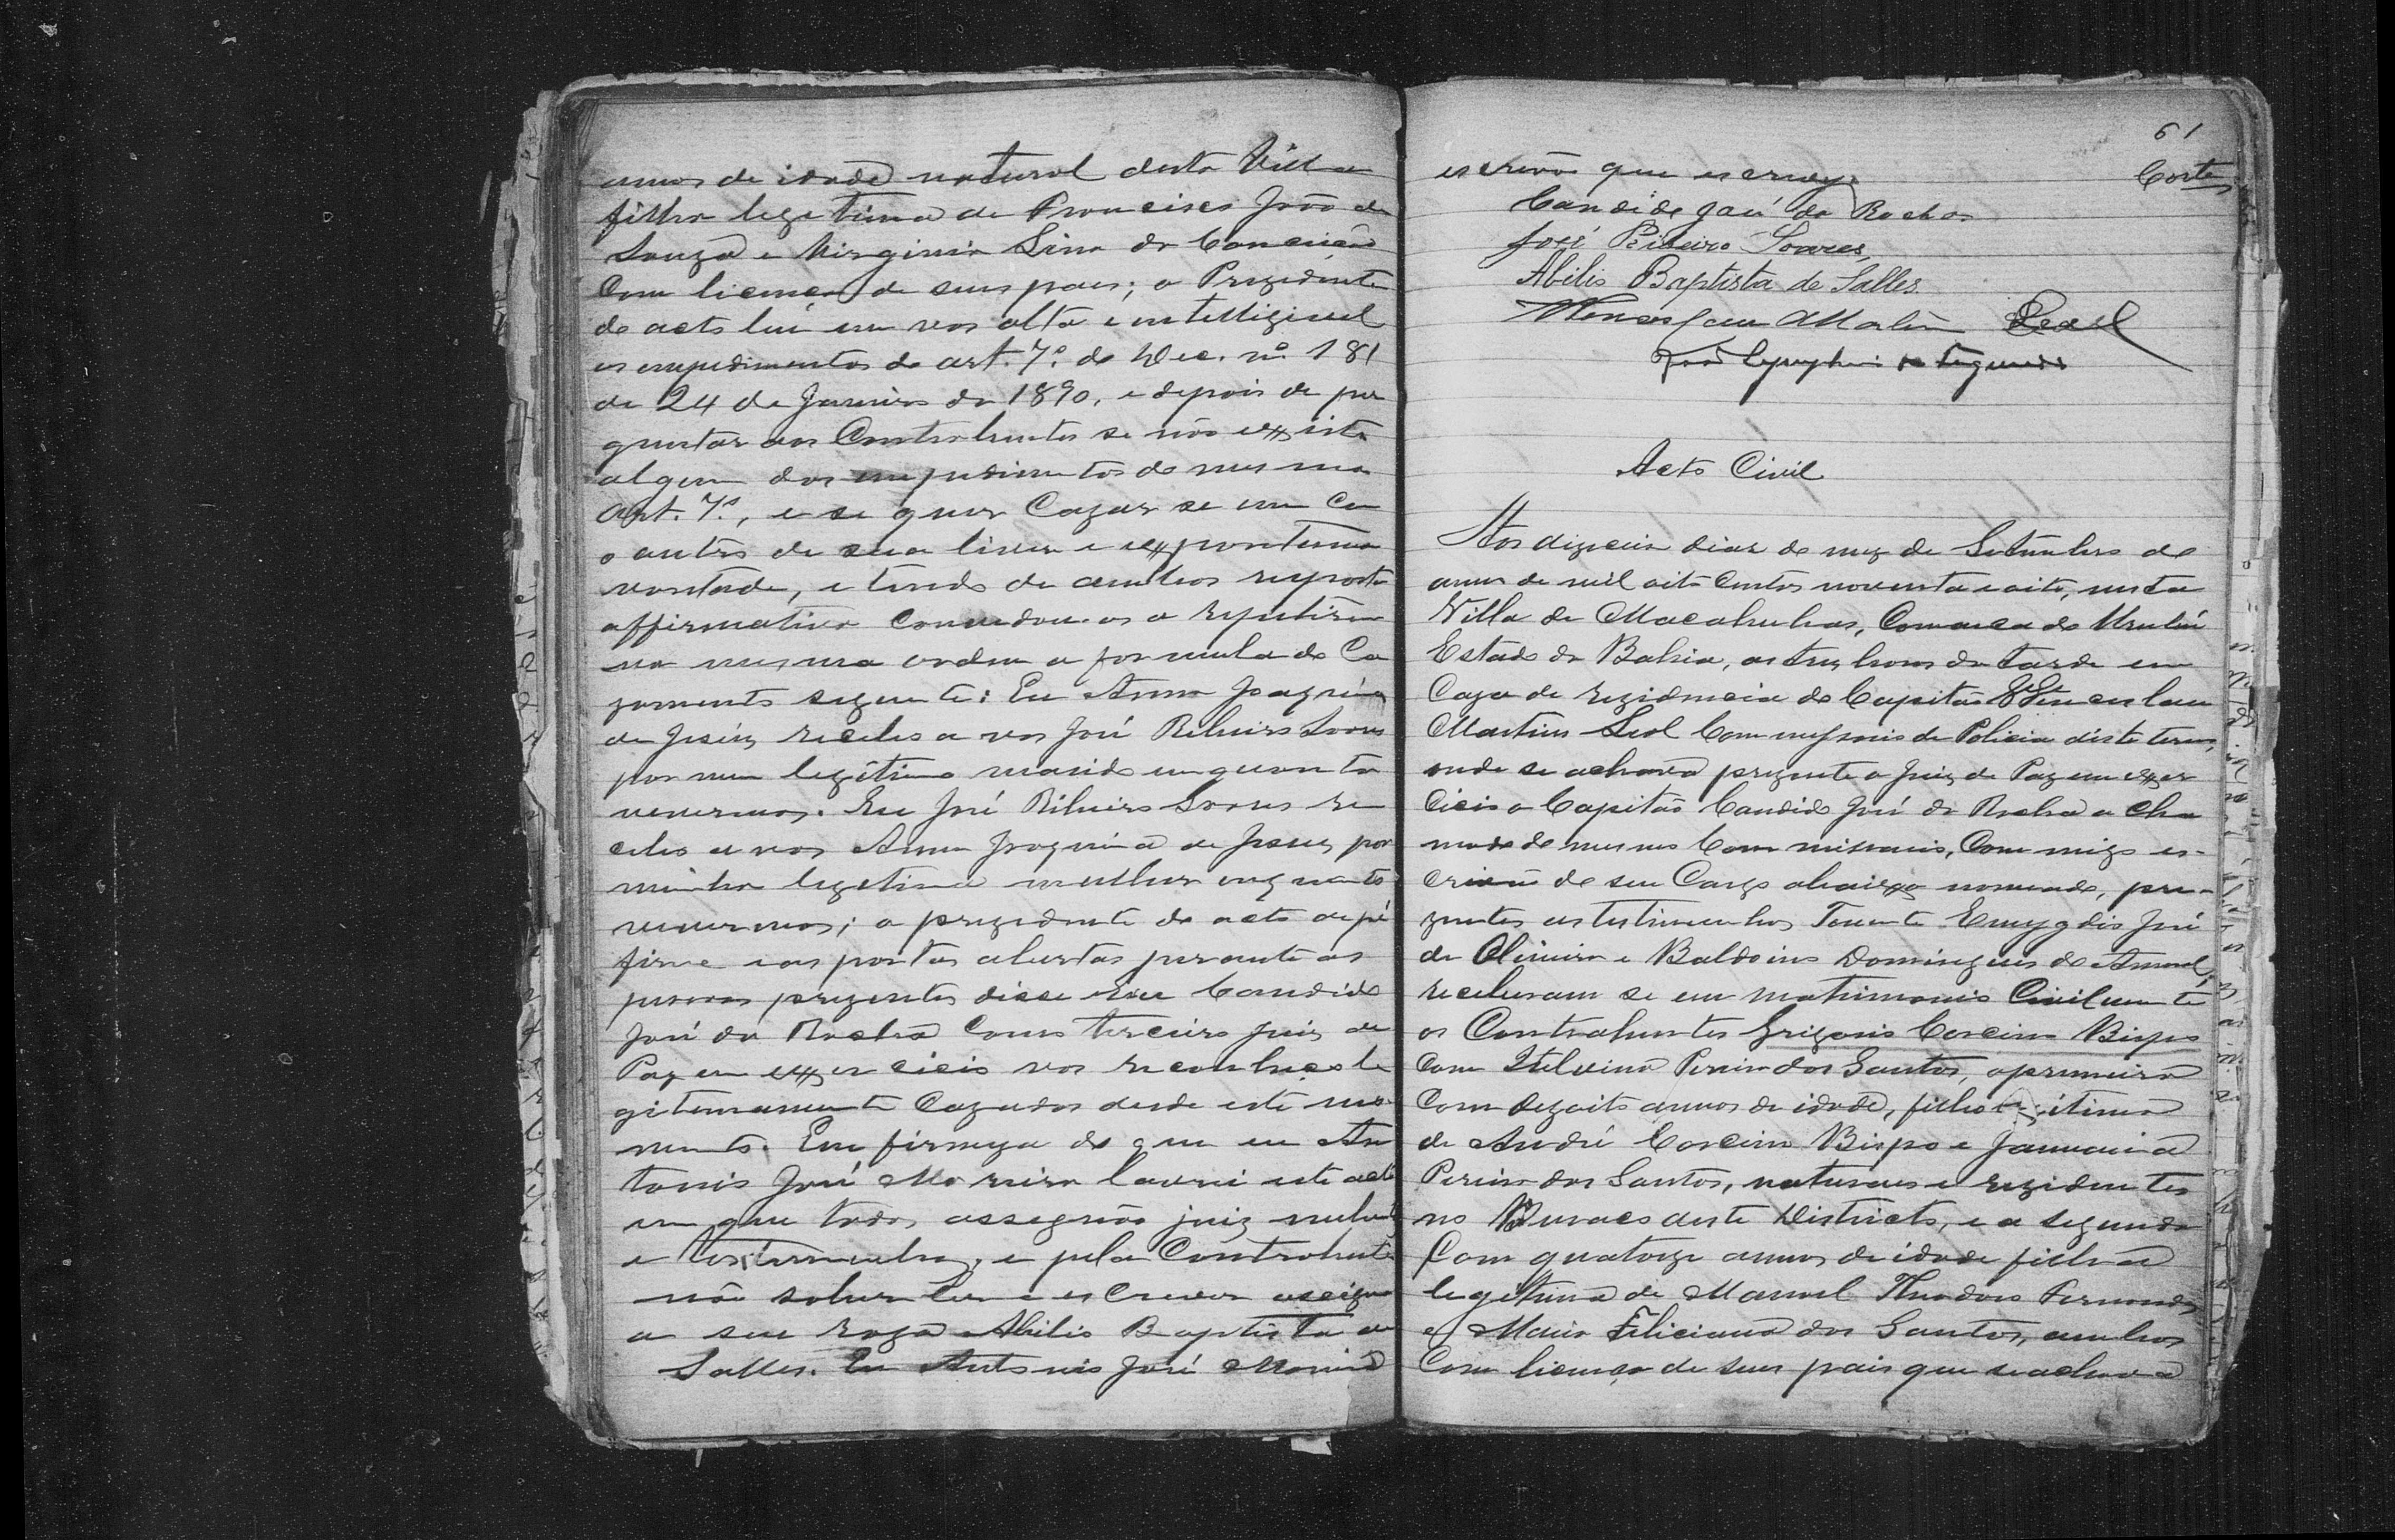 annos de idade natural desta Villa
filha legetima de Francisco João de
Souza e Virginia Lina da Conceição
Com licença de seus paes; o Prezidente
do acto lui em vos alta e intelligivel
os empedimentos do art. 7º do Dec. nº 181
de 24 de Janeiro de 1890, e depois de per
guntar aos Contrahentes se não existe
algum dos empedimentos do mesmo
Art. 7º, e se quer Cazar se um Com
o outro de sua livre e expontania
vontade, e tendo de ambos resposta
affirmativa Convidou-os a repetirem
na mesma ordem a formula do Ca
zamento seguinte: Eu Anna Joaquina
de Jesús recebo a vos José Ribeiro Soares
por meu legitimo marido enquanto
vevermos. Eu José Ribeiro Soares re
cebo a vos Anna Joaquina de Jesus por
minha legetima mulher enquanto
vevermos; o prezidente do acto de pé
firme e as portas abertas perante as
pessoas prezentes disse Eu Candido
José da Rocha Como terceiro juiz de
Paz em exercicio vos reconheço le
gitemamente Cazados desde este mo
mento. Em firmeza do que eu An
tonio José Moreira lavrei este acto
em que todos assegnão juiz
e testemunhas, e pela Contrahente
não saber ler e escrever assigna
a seu rogo Abilio Baptista de
Salles. Eu Antonio José Moreira
61
escrivão que escrevy.
Cortes
Candido José da Rocha
José Ribeiro Soares
Abilio Baptista de Salles
Wenceslau Martins Leal
João
Acto Civil
Aos dizeceis dias do mez de Setembro do
anno de mil oito Centos noventa e oito, nesta
Villa de Macahubas, Comarca do Urubú
Estado da Bahia, as tres horas da tarde em
Caza de rezidencia do Capitão Wenceslau
Martins Leal Commessario de Policia deste termo,
onde se achava prezente o Juiz de Paz em exer
Cicio o Capitão Candido José da Rocha a cha
mado do mesmo Commissario, Commigo es-
Crivão de seu Cargo abaixo nomeado, pre-
zentes as testimunhas Tenente Emygdio José
de Oliveira e Baldoino Domingues do Amaral,
receberam se em matrimonio Civilmente
os Contrahentes Grigorio Corcino Bispo
Com Itelvina Pereira dos Santos, o primeiro
Com dezoito annos de idade, filho legitimo
de André Corcino Bispo e Januaria
Pereira dos Santos, naturaes e rezidentes
no Buraco deste Districto, e a segunda
Com quatorze annos de idade filha
legetima de Manoel Theodoro Fernandes
e Maria Feliciana dos Santos, ambos
Com licença de seus pais que se achava